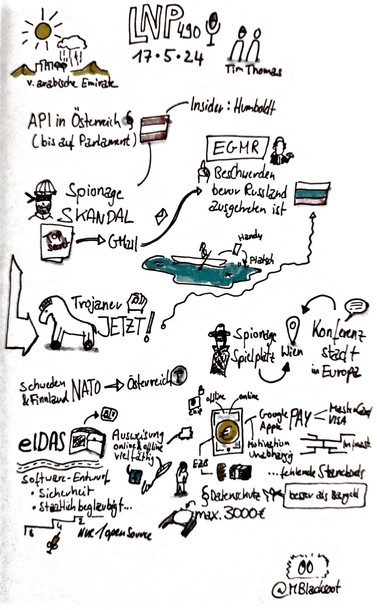 LNP 490
17.5.24
Tim Thomas
v. arabische Emirate
Insider: Humboldt
API in Österreich
(bis auf Parlament)
EGMR
Beschwerden
bevor Russland
ausgetreten ist
Spionage
SKANDAL
Top
Secret
GMail
Handy
Platsch
Trojaner
JETZT!
Spionage
Spielplatz
Wien
Konferenz
stadt
in Europa
Schweden
&Finnland NATO → Österreich
offline
online
Google
Apple PAY
MasterCard
VISA
Motivation
unabhängig
EZB
...fehlende Standards
eIDAS
Ausweisung
online&offline
vielfältig
Software-Entwurf
• Sicherheit
• Staatlich beglaubigt...
NUR 1 open Source
§Datenschutz
besser als Bargeld
max. 3000€
@MBlackfoot